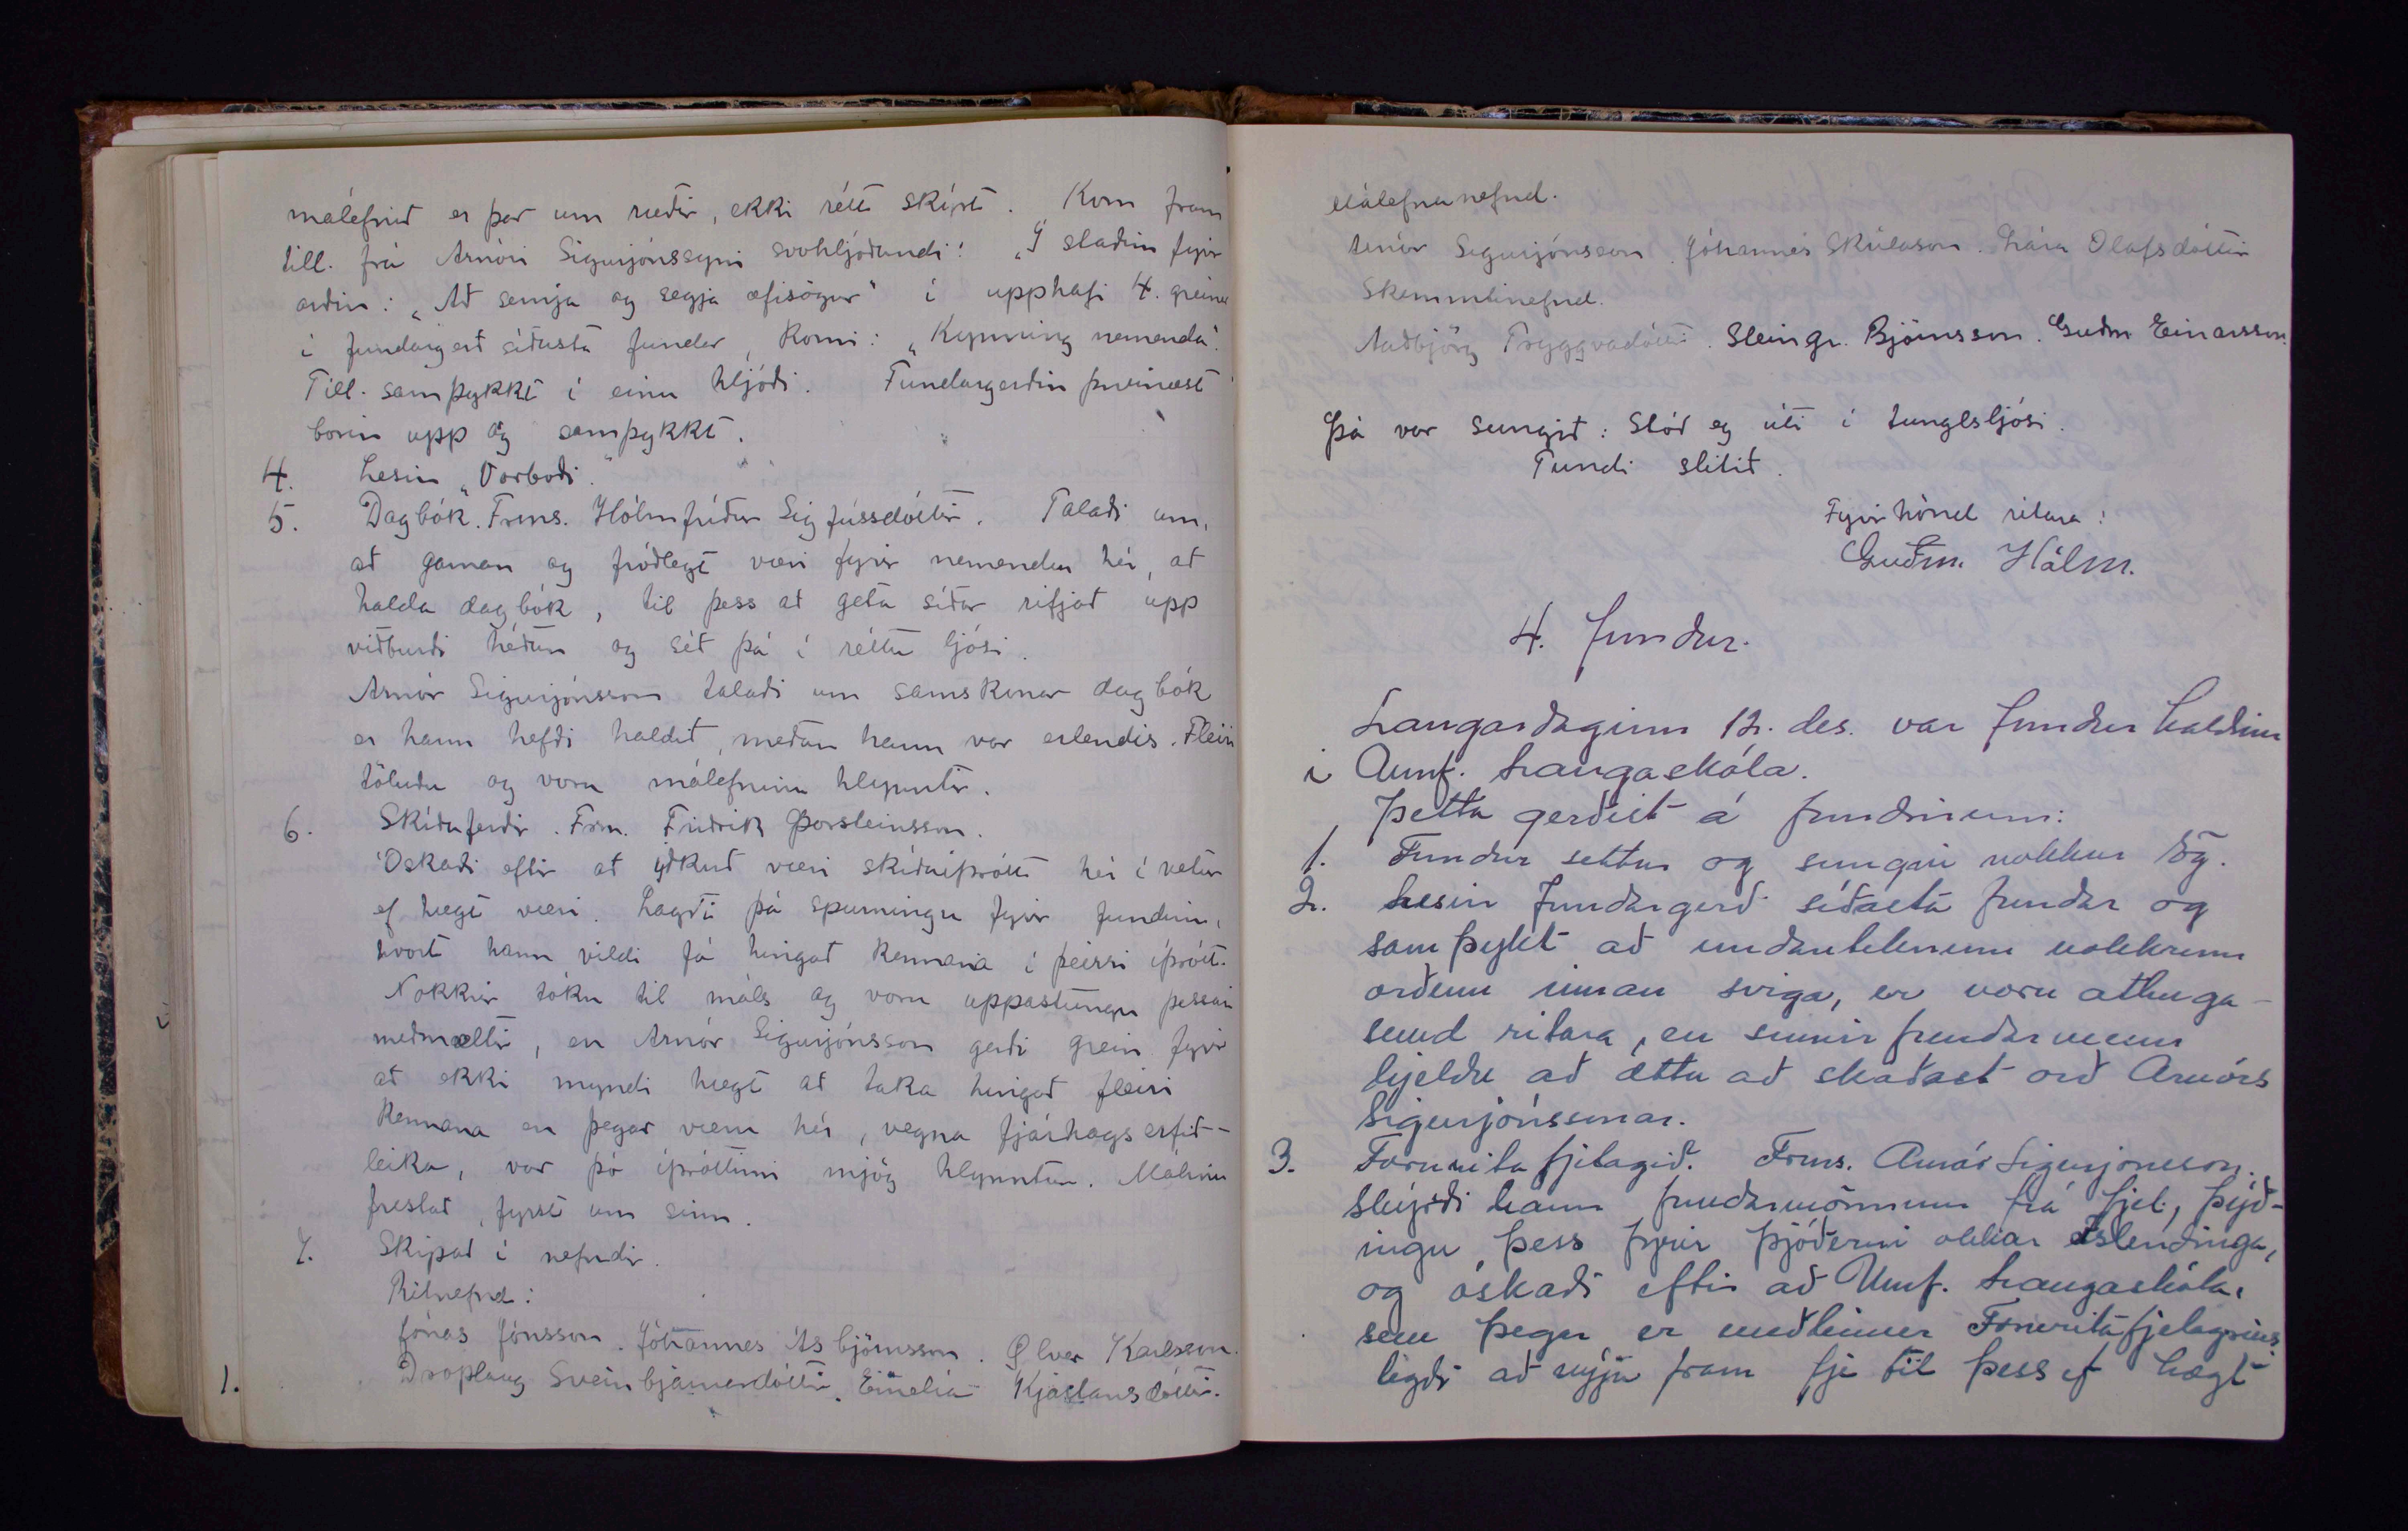 málefnið er þar um ræðir, ekki rétt skírt. Kom fram
till. frá Arnóri Sigurjónssyni svohljóðandi: „Í staðin fyrir
orðin: „Að semja og segja æfisögur" í upphafi 4. greinar
í fundargerð síðasta fundar, komi: „Kynning nemenda".
Till. samþykkt í einu hljóði. Fundargerðin þvínæst
borin upp og samþykkt.
4. Lesin „Vorboði".
5. Dagbók. Frms. Hólmfríður Sigfúsdóttir. Talaði um,
að gaman og fróðlegt væri fyrir nemendur hér, að
halda dagbók, til þess að geta síðar rifjað upp
viðburði héðan og séð þá í réttu ljósi.
Arnór Sigurjónsson talaði um samskonar dagbók
er hann hefði haldið, meðan hann var erlendis. Fleiri
töluðu og voru málefninu hlynntir.
6. Skíðaferðir. Frm. Friðrik Þorsteinsson.
Óskaði eftir að iðkuð væri skíðaíþrótt hér í vetur
ef hægt væri. Lagði þá spurningu fyrir fundinn,
hvort hann vildi fá hingað kennara í þeirri íþrótt.
Nokkrir tóku til máls og voru uppástungu þessari
meðmæltir, en Arnór Sigurjónsson gerði grein fyrir
að ekki myndi hægt að taka hingað fleiri
kennara en þegar væru hér, vegna fjárhagserfið-
leika, var þó íþróttinni mjög hlynntur. Málinu
frestað, fyrst um sinn.
7. Skipað í nefndir.
Ritnefnd:
Jónas Jónsson. Jóhannes Ásbjörnsson. Ölver Karlsson.
1. Droplaug Sveinbjarnardóttir. Emelía Kjartansdóttir.
Málefnanefnd.
Arnór Sigurjónsson. Jóhannes Skúlason. Lára Ólafsdóttir
Skemmtinefnd.
Auðbjörg Tryggvadóttir. Steingr. Björnsson. Guðm Einarsson.
Þá var sungið: Stóð eg úti í tunglsljósi.
Fundi slitið.
Fyrir hönd ritara:
Guðm. Hálm.
4. fundur.
Laugardaginn 12. des. var fundur haldinn
í Umf. Laugaskóla.
Þetta gerðist á fundinum:
1. Fundur settur og sungin nokkur lög.
2. Lesin fundargerð síðasta fundar og
samþykt að undanteknum nokkrum
orðum innan sviga, er voru athuga-
semd ritara, en sumir fundarmenn
hjeldu að ættu að skoðast orð Arnórs
Sigurjónssonar.
3. Fornritafjelagið. Frms. Arnór Sigurjónsson.
Skýrði hann fundarmönnum frá fjel., þýð-
ingu þess fyrir þjóðerni okkar Íslendinga,
og óskaði eftir að Umf. Laugaskóla,
sem þegar er meðlimur Fornritafjelagsins,
legði að nýju fram fje til þess ef hægt